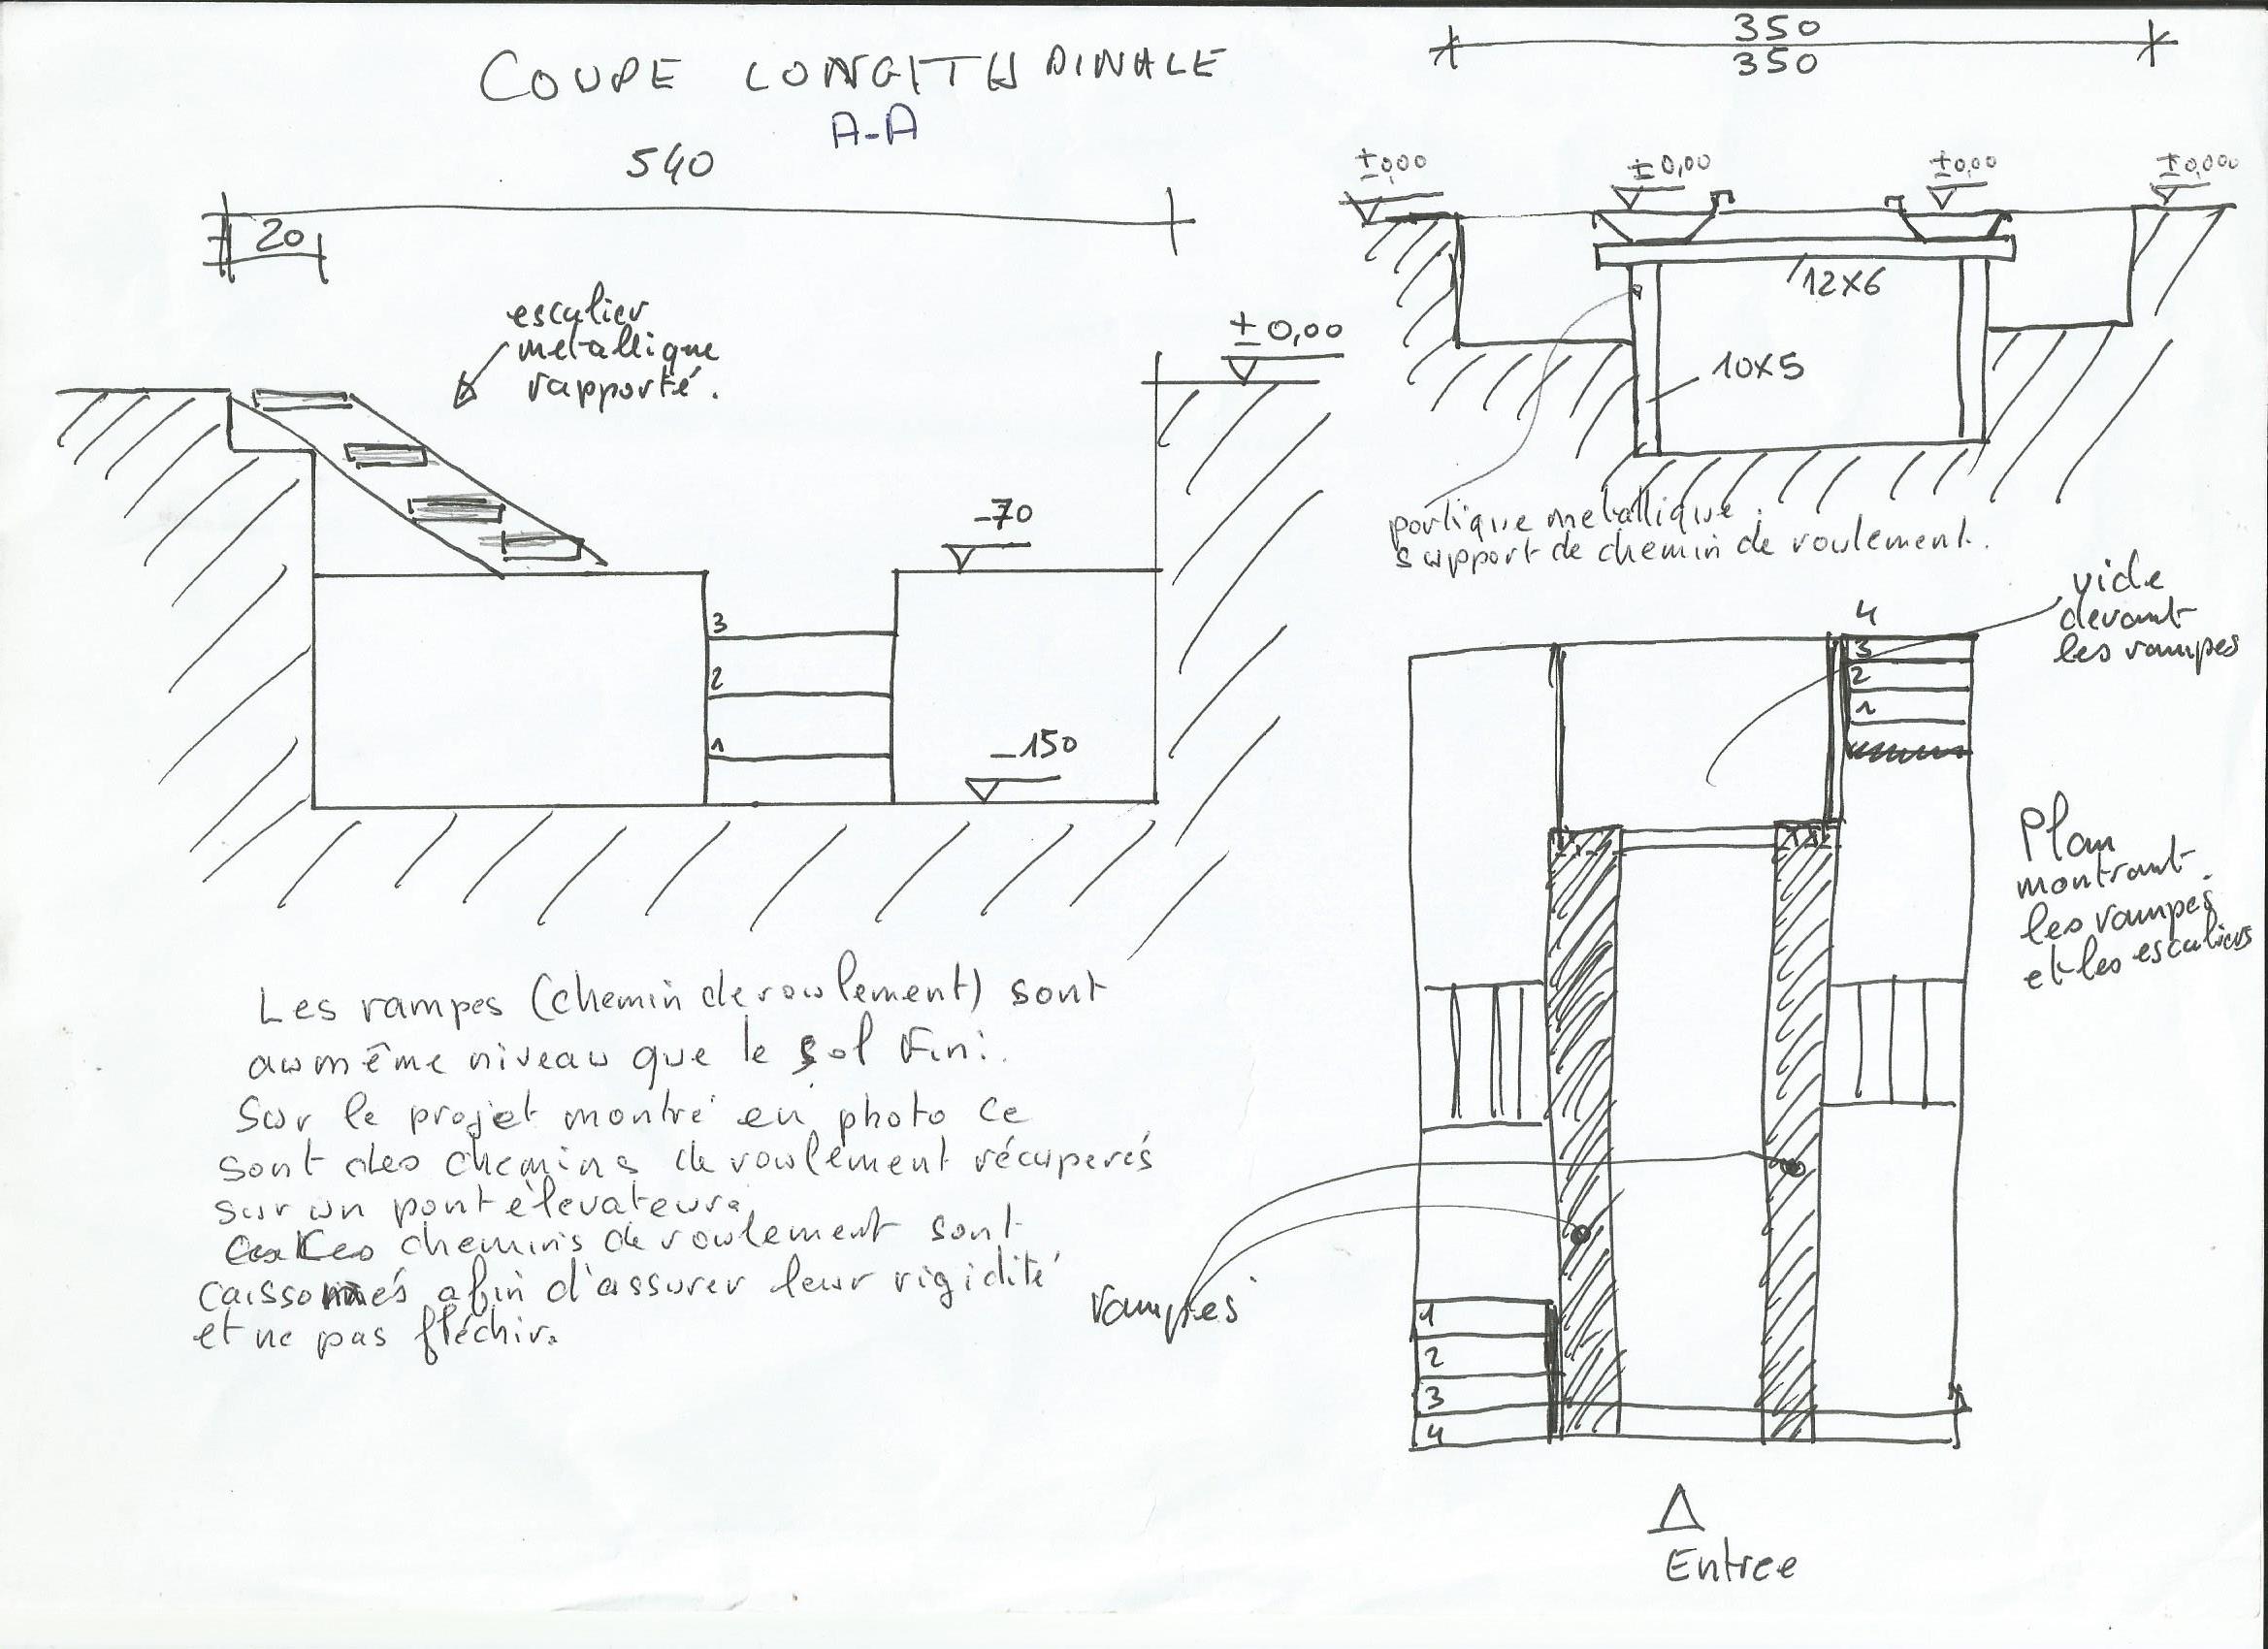 COUPE LONGITUDINALE
A-A
540
20
escalier
metallique
rapporté.
±0,00
-70
3
2
1
-150
Les rampes (chemin de roulement) sont
au même niveau que le sol Fini.
Sur le projet montré en photo ce
sont des chemins de roulement récuperés
sur un pont élevateur.
Les chemins de roulement sont
caissonnés afin d'assurer leur rigidité
et ne pas fléchir.
350
350
±0,00
±0,00
±0,00
±0,00
12x6
10x5
portique metallique.
support de chemin de roulement.
vide
devant
les rampes
4
3
2
1
Plan
montrant
les rampes
et les escaliers
rampes
1
2
3
4
Entree